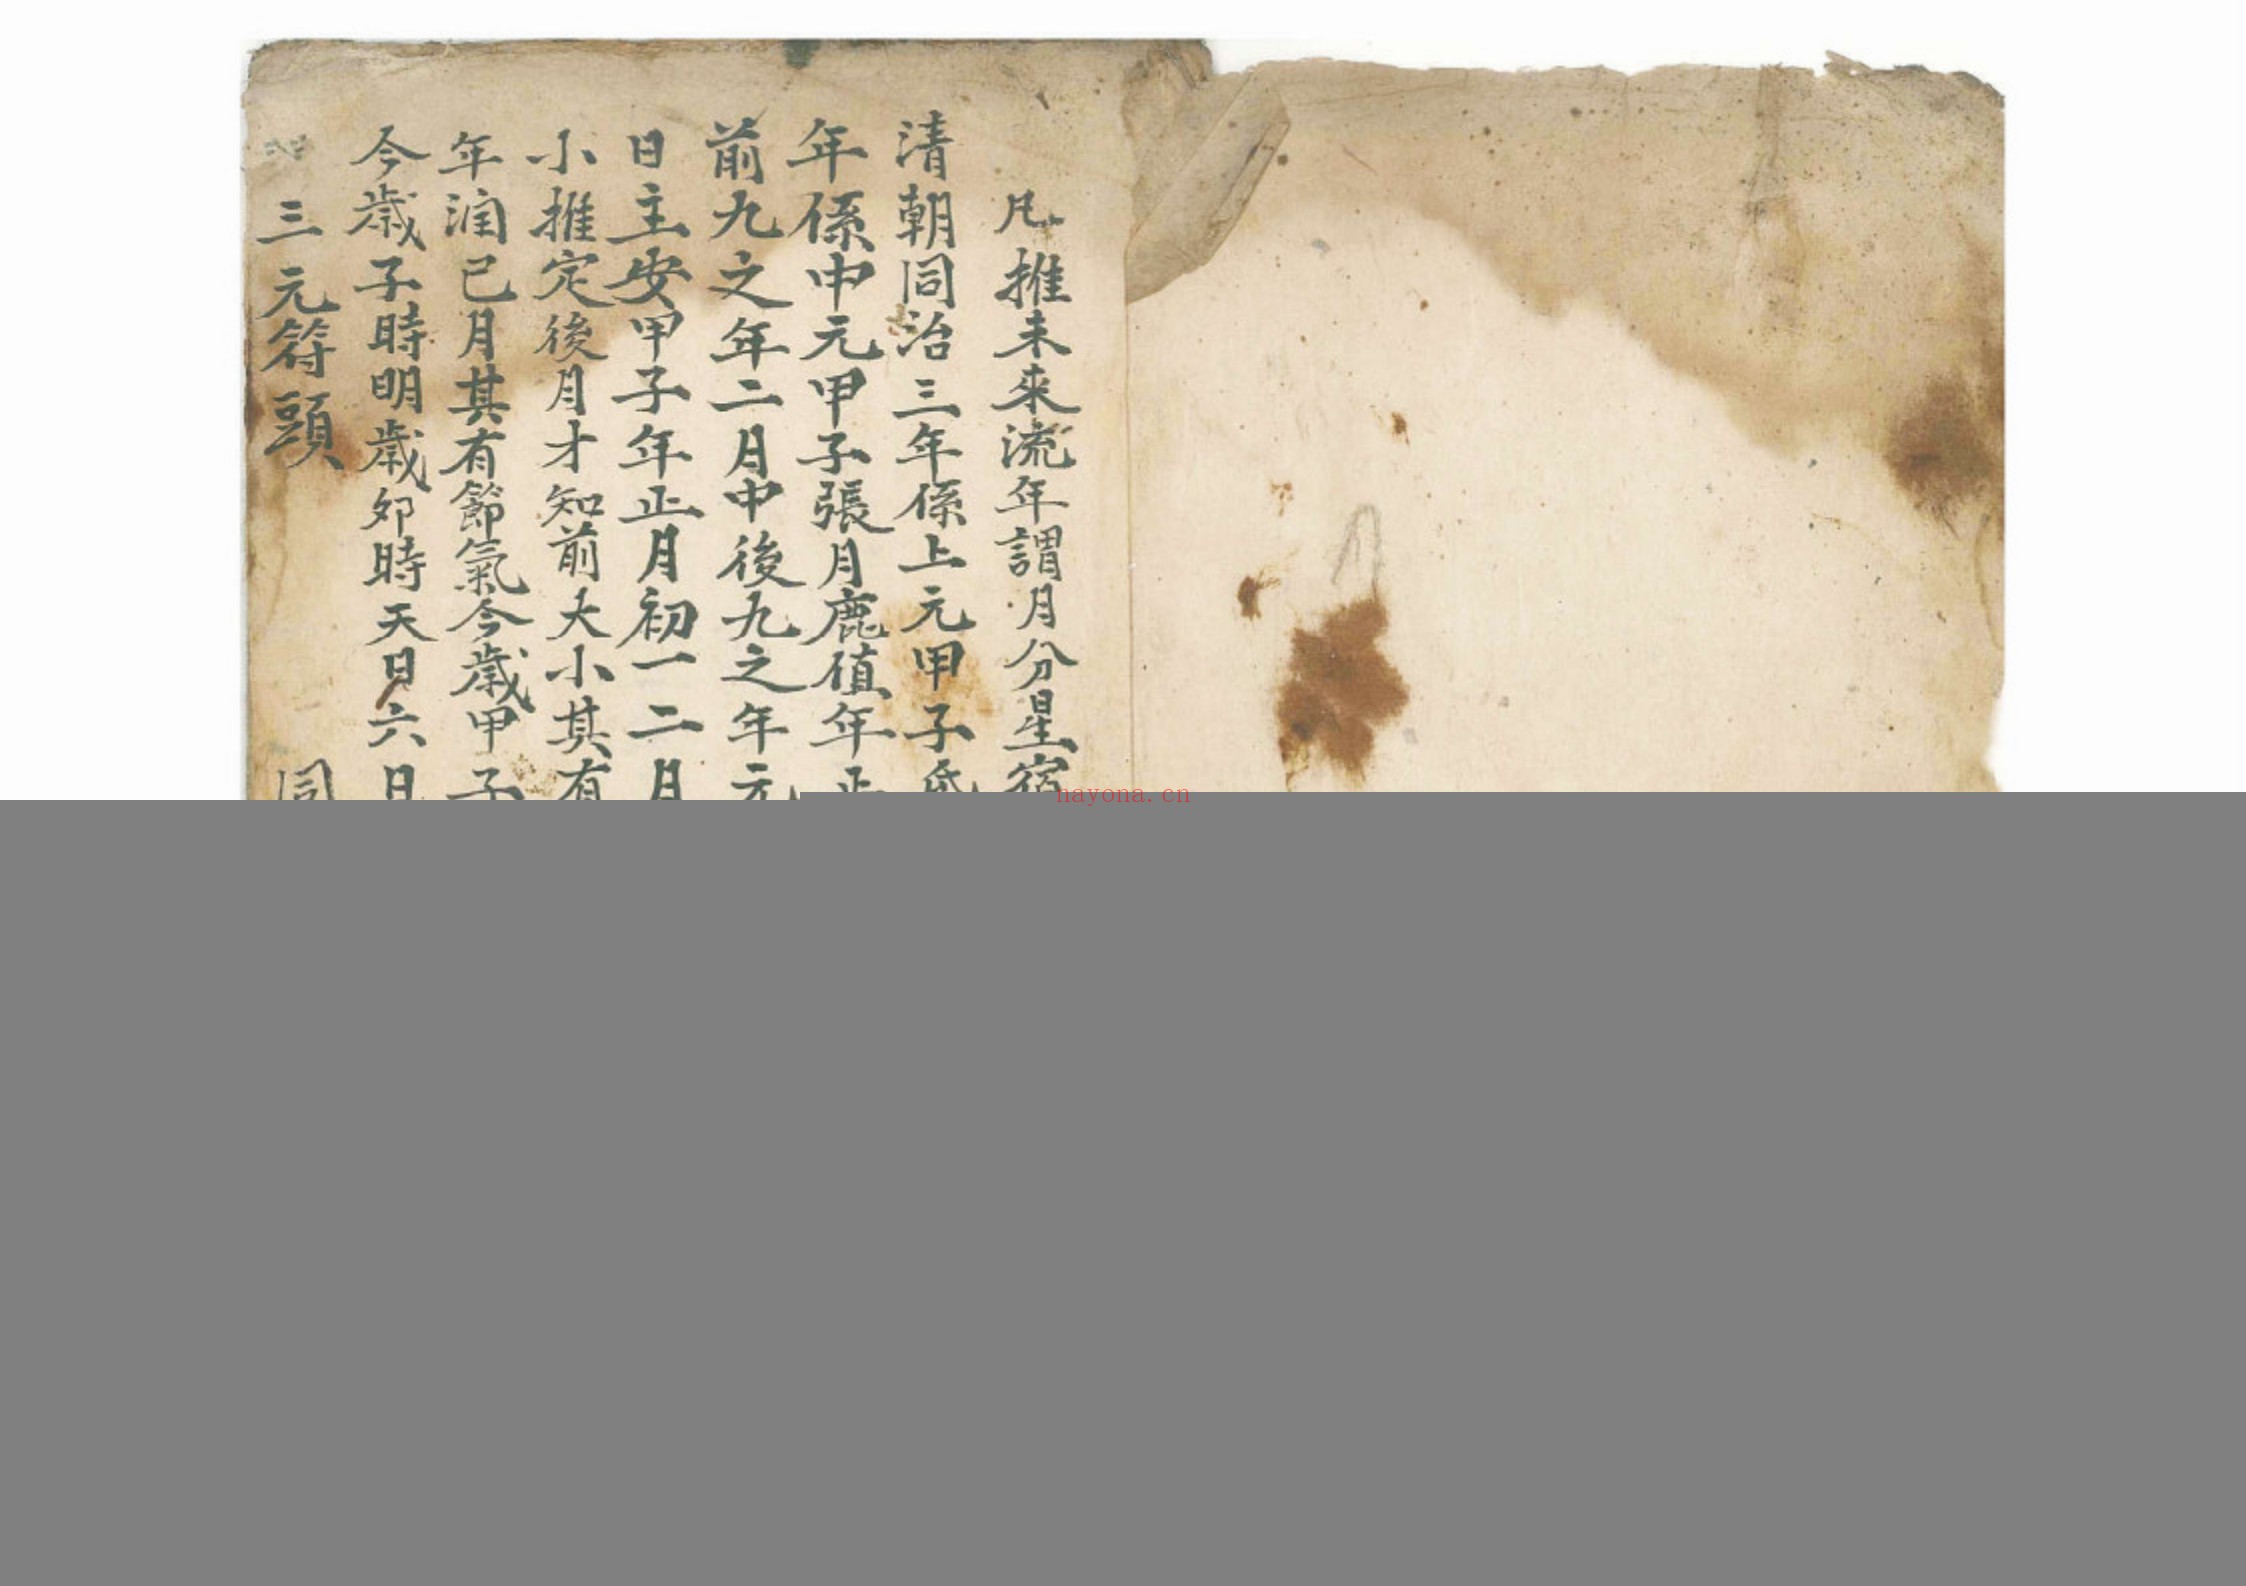 凡推未來流年謂月分星宿
清朝同治三年係上元甲子
年係中元甲子張月鹿值年正
前九之年二月中後九之年元
日主安甲子年正月初一二月
小推定後月才知前大小其有
年潤已月其有節氣今歲甲子
今歲子時明歲卯時天日六日
三元符頭 同
nayona.cn